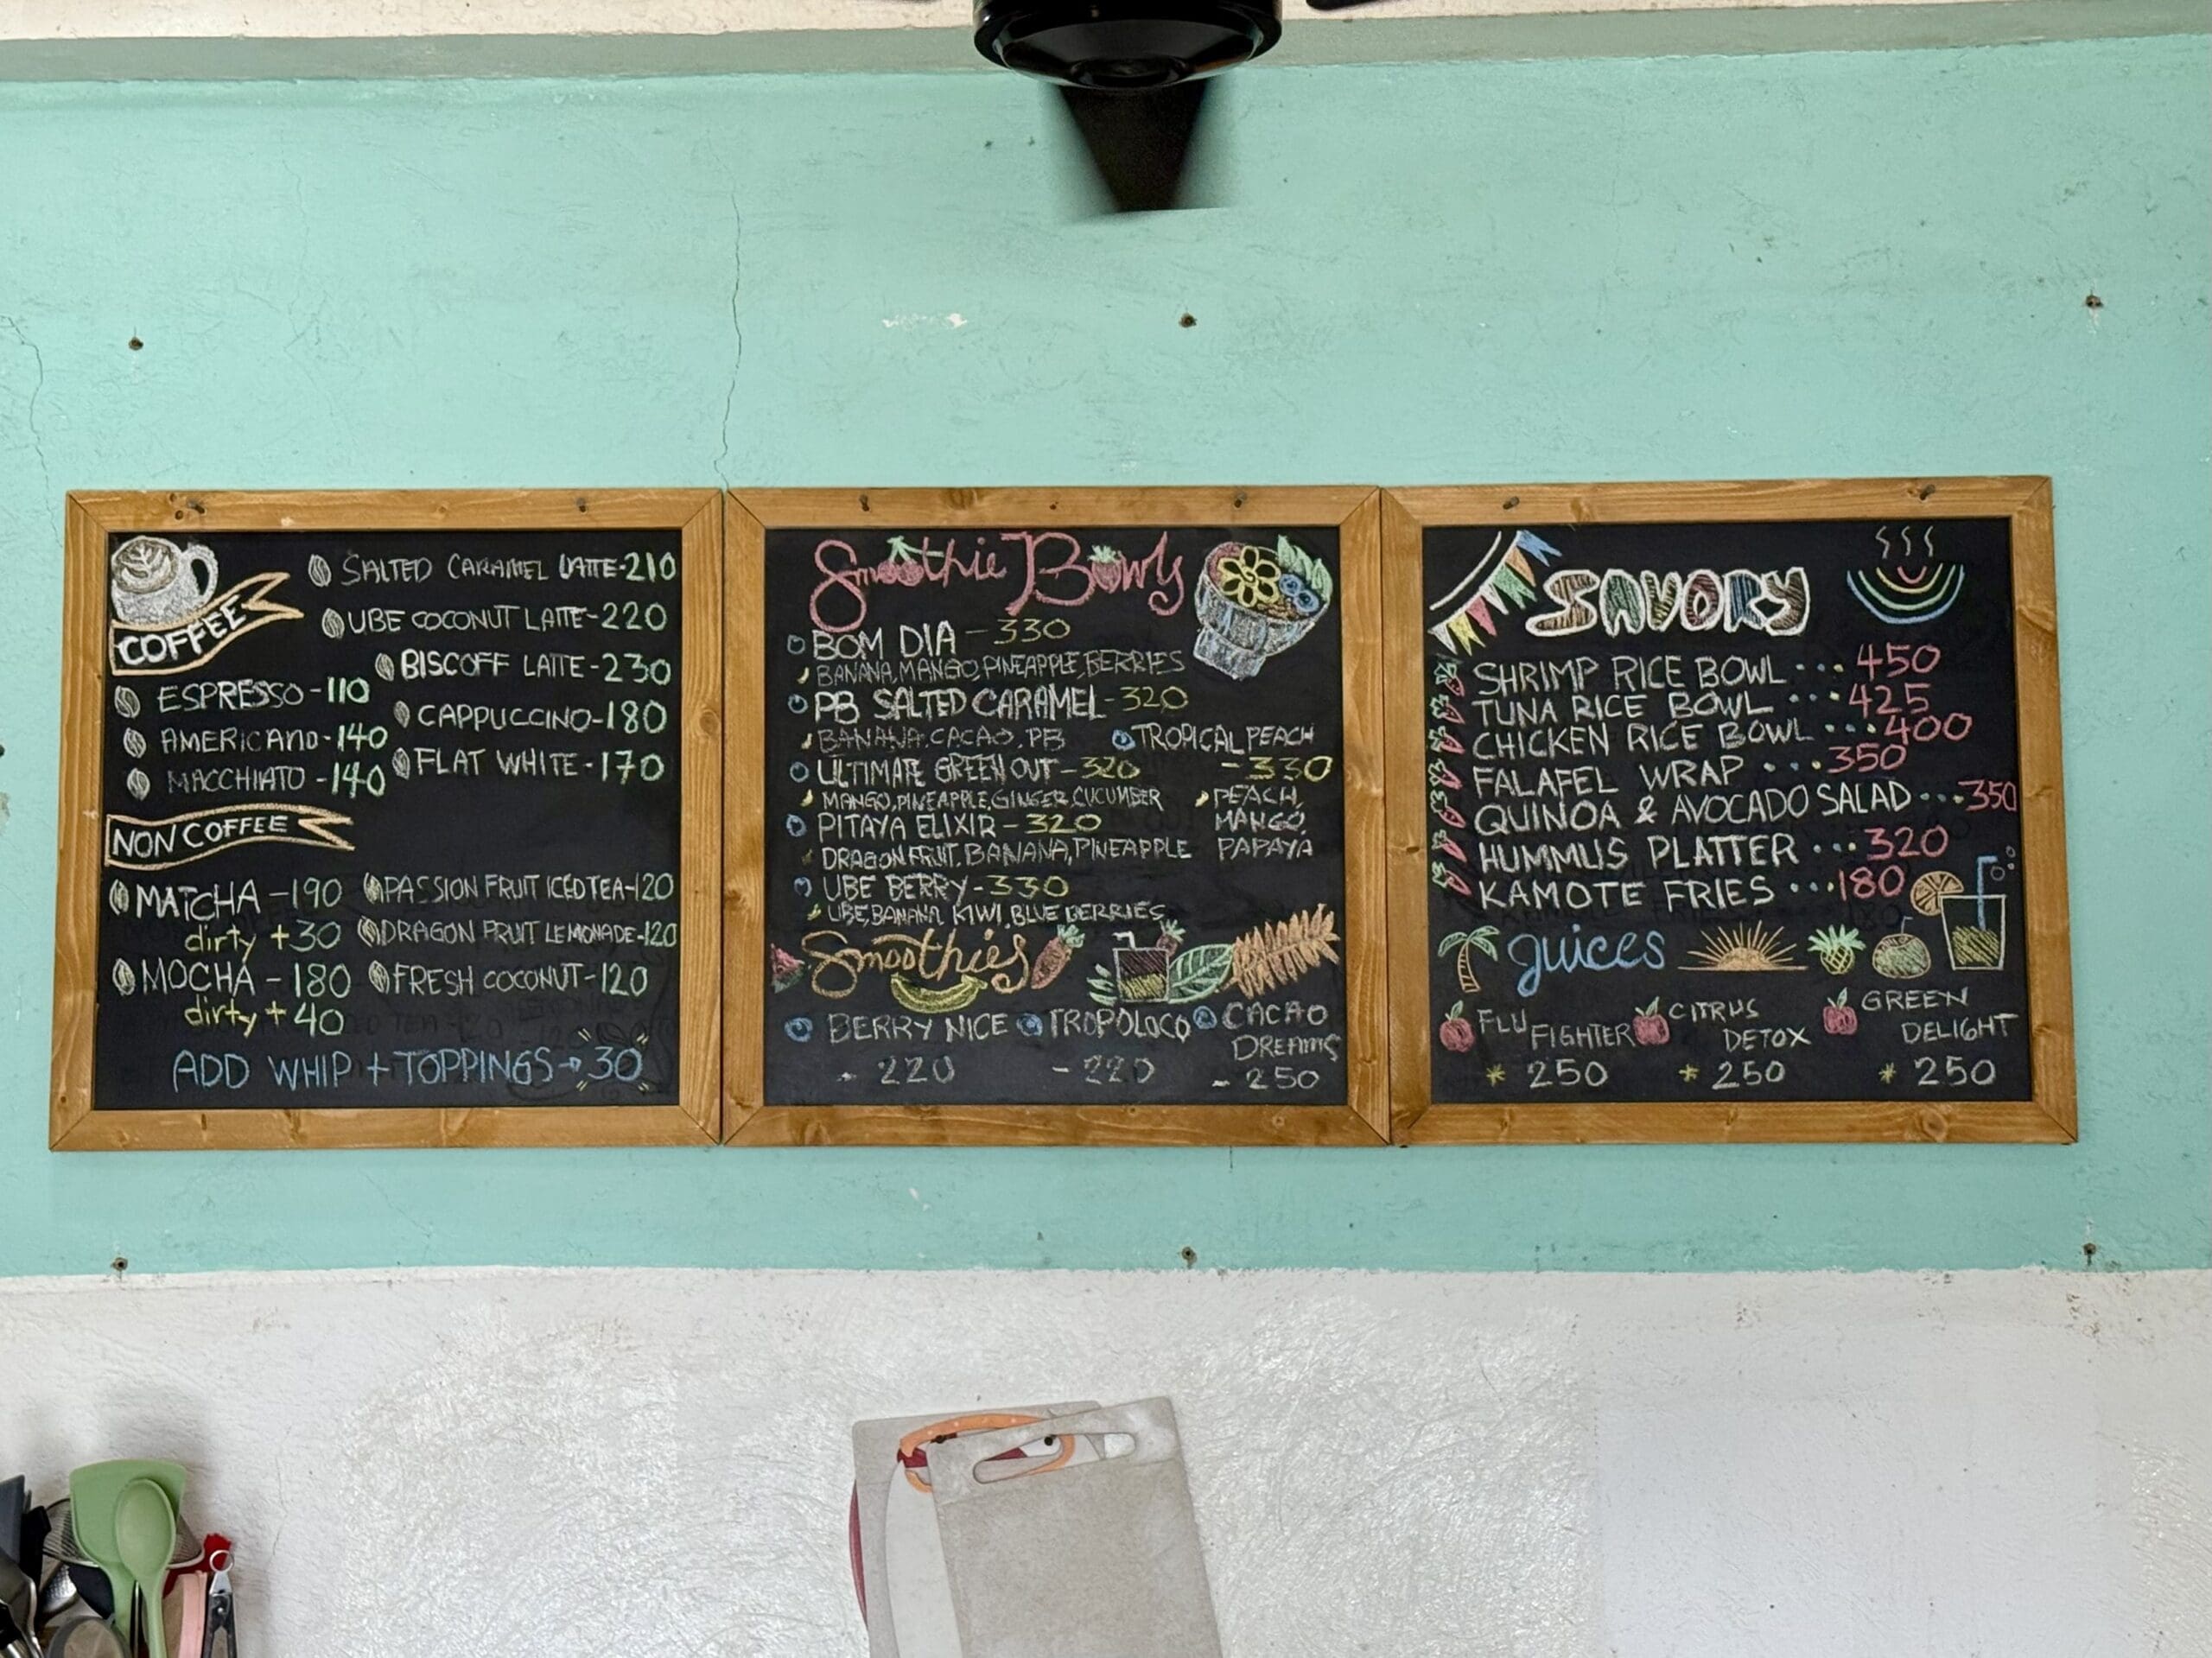 COFFEE
SALTED CARAMEL LATTE-210
UBE COCONUT LATTE-220
BISCOFF LATTE-230
CAPPUCCINO-180
FLAT WHITE-170
ESPRESSO-110
AMERICANO-140
MACCHIATO-140
NON COFFEE
MATCHA-190
dirty +30
MOCHA-180
dirty +40
PASSION FRUIT ICED TEA-120
DRAGON FRUIT LEMONADE-120
FRESH COCONUT-120
ADD WHIP + TOPPINGS→30
Smoothie Bowls
BOM DIA-330
BANANA, MANGO, PINEAPPLE, BERRIES
PB SALTED CARAMEL-320
BANANA. CACAO. PB
ULTIMATE GREEN OUT-320
MANGO, PINEAPPLE, GINGER, CUCUMBER
PITAYA ELIXIR-320
DRAGON FRUIT, BANANA, PINEAPPLE
UBE BERRY-330
UBE, BANANA, KIWI, BLUE BERRIES
TROPICAL PEACH
-330
PEACH,
MANGO,
PAPAYA
Smoothies
BERRY NICE
- 220
TROPOLOCO
- 220
CACAO
DREAMS
- 250
SAVORY
SHRIMP RICE BOWL ... 450
TUNA RICE BOWL ... 425
CHICKEN RICE BOWL ... 400
FALAFEL WRAP ... 350
QUINOA & AVOCADO SALAD ... 350
HUMMUS PLATTER ... 320
KAMOTE FRIES ... 180
Juices
FLU
FIGHTER
* 250
CITRUS
DETOX
* 250
GREEN
DELIGHT
* 250